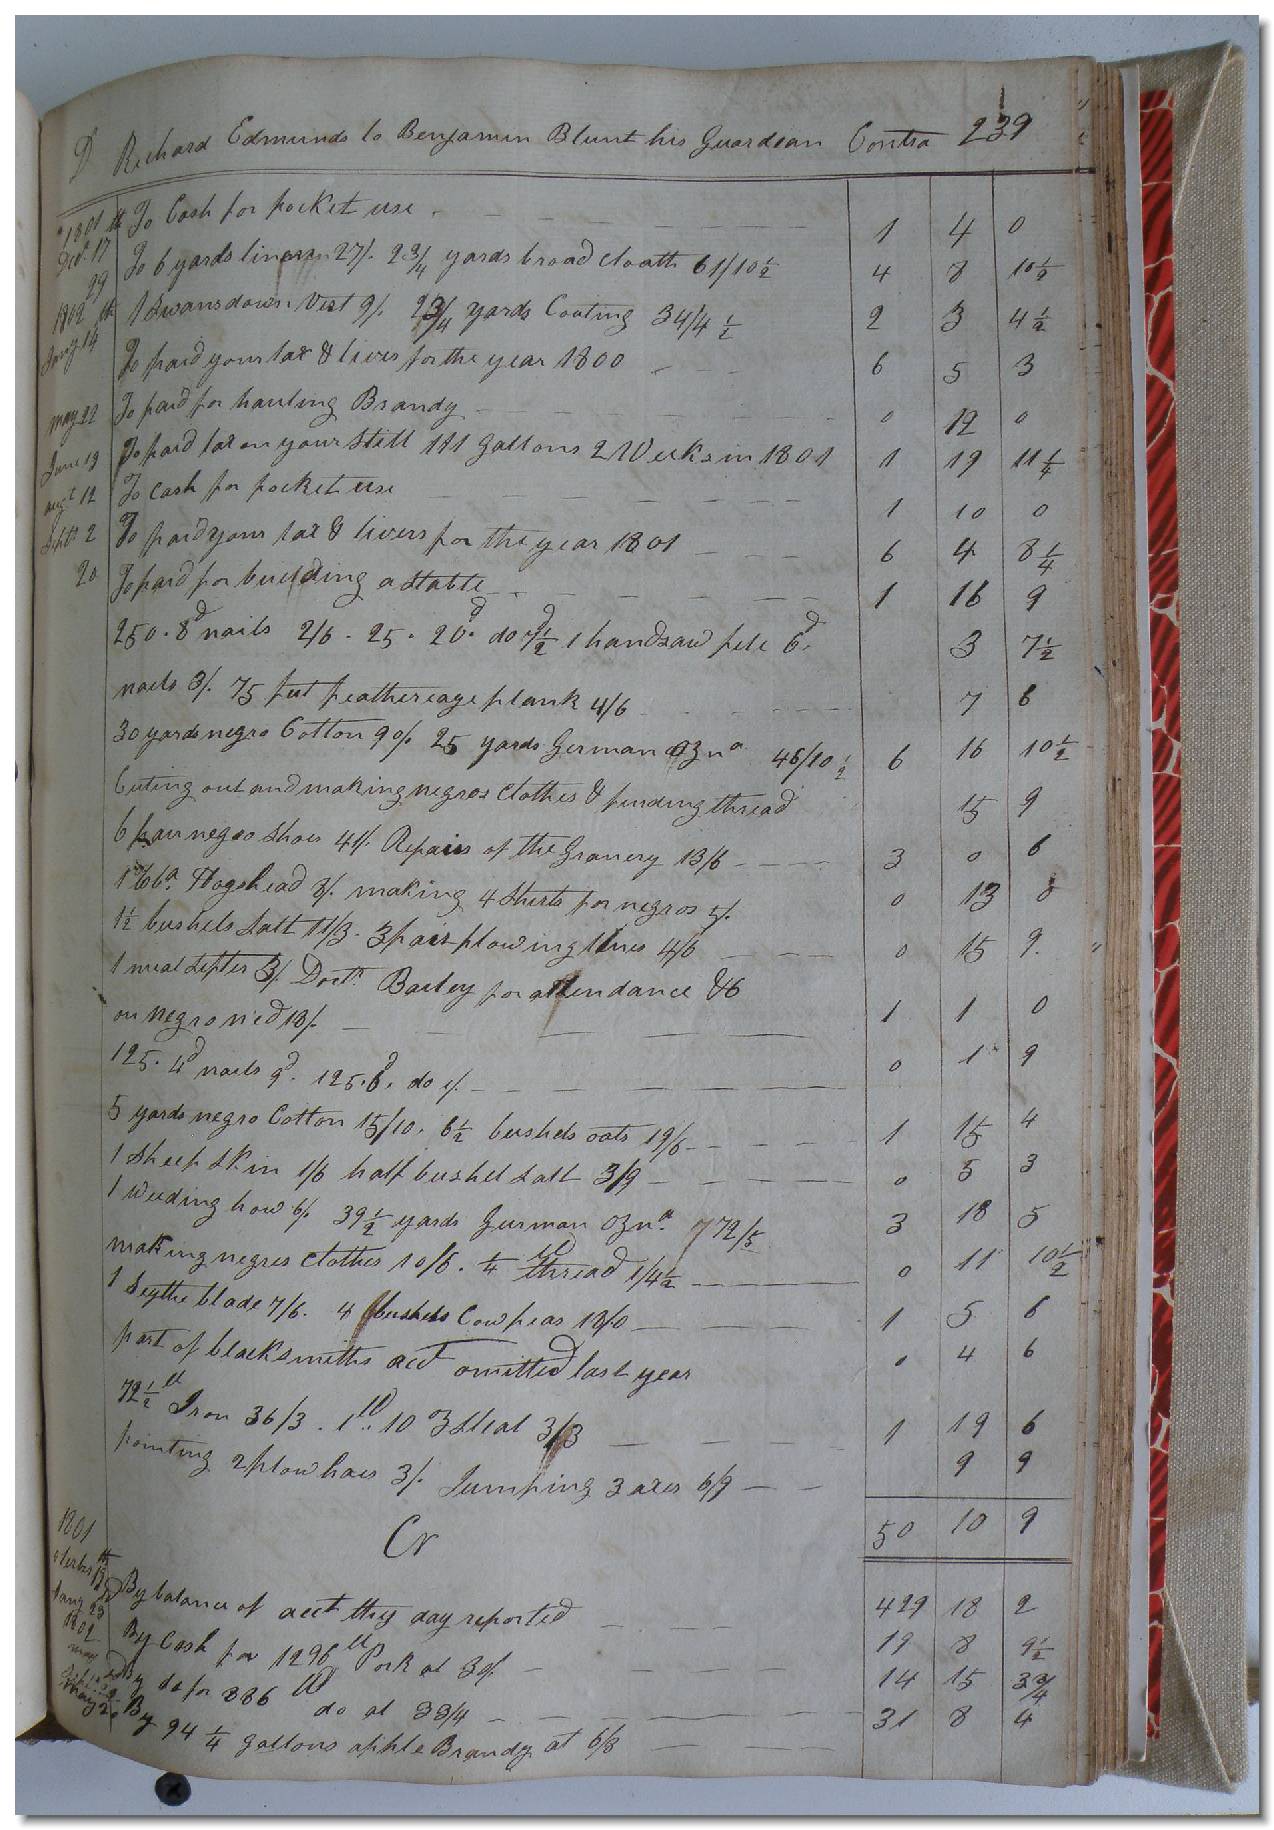 D Richard Edmunds to Benjamin Blunt his Guardian Contra 239
1801 To Cash for pocket use 1 4 0
Oct. 17th To 6 yards linnen 27/. 2 3/4 yards broad cloath 61/10 1/2 4 8 10 1/2
29 1 Swansdown Vest 9/. 2 3/4 yards Coating 34/4 1/2 2 3 4 1/2
1802 Jany 14th To paid your tax & livies for the year 1800 6 5 3
may 22 To paid for hauling Brandy 0 12 0
June 19 To paid tax on your Still 111 gallons 2 Weeks in 1801 1 19 11 1/4
augt 12 To cash for pocket use 1 10 0
Septr 2 To paid your tax & livies for the year 1801 6 4 8 1/4
20 To paid for building a stable 1 16 9
250. 8d nails 2/6. 25. 20d. do 7 1/2 1 handsaw file 6d. 3 7 1/2
nails 3/. 75 feet feather eage plank 4/6 7 6
30 yards negro Cotton 90/. 25 yards German Ozna 46/10 1/2 6 16 10 1/2
Cuting out and making negros clothes & finding thread 15 9
6 pair negro Shoes 41/. Repairs of the Granery 13/6 3 0 6
1 Toba. Hogshead 8/. making 4 Shirts for negros 5/. 0 13 0
1 1/2 bushels Salt 11/3. 3 pair plowing lines 4/6 0 15 9.
1 meal Sifter 3/. Doctr. Bailey for attendance &c
on negro ned 18/. 1 1 0
125. 4d nails 9d. 125. 6d. do 1/. 0 1 9
5 yards negro Cotton 15/10. 6 1/2 bushels oats 19/6 1 15 4
1 Sheep Skin 1/6 half bushel Salt 3/9 0 5 3
1 weeding how 6/. 39 1/2 yards German Ozna. 72/5 3 18 5
making negros clothes 10/6. 1/4 lb thread 1/4 1/2 0 11 10 1/2
1 Scythe blade 7/6. 4 bushels Cow peas 18/0 1 5 6
part of blacksmiths acct omitted last year 0 4 6
72 1/2 lb Iron 36/3. 1lb. 10 oz Steal 3/3 1 19 6
pointing 2 plow hoes 3/. Jumping 3 axes 6/9 9 9
50 10 9
Cr
1801 By balance of acct this day reported 429 18 2
Jany 23 By Cash for 1296 lb Pork at 30/. 19 8 9 1/2
1802 By do for 886 lb do at 33/4 14 15 3 3/4
may By 94 1/4 gallons apple Brandy at 6/8 31 8 4